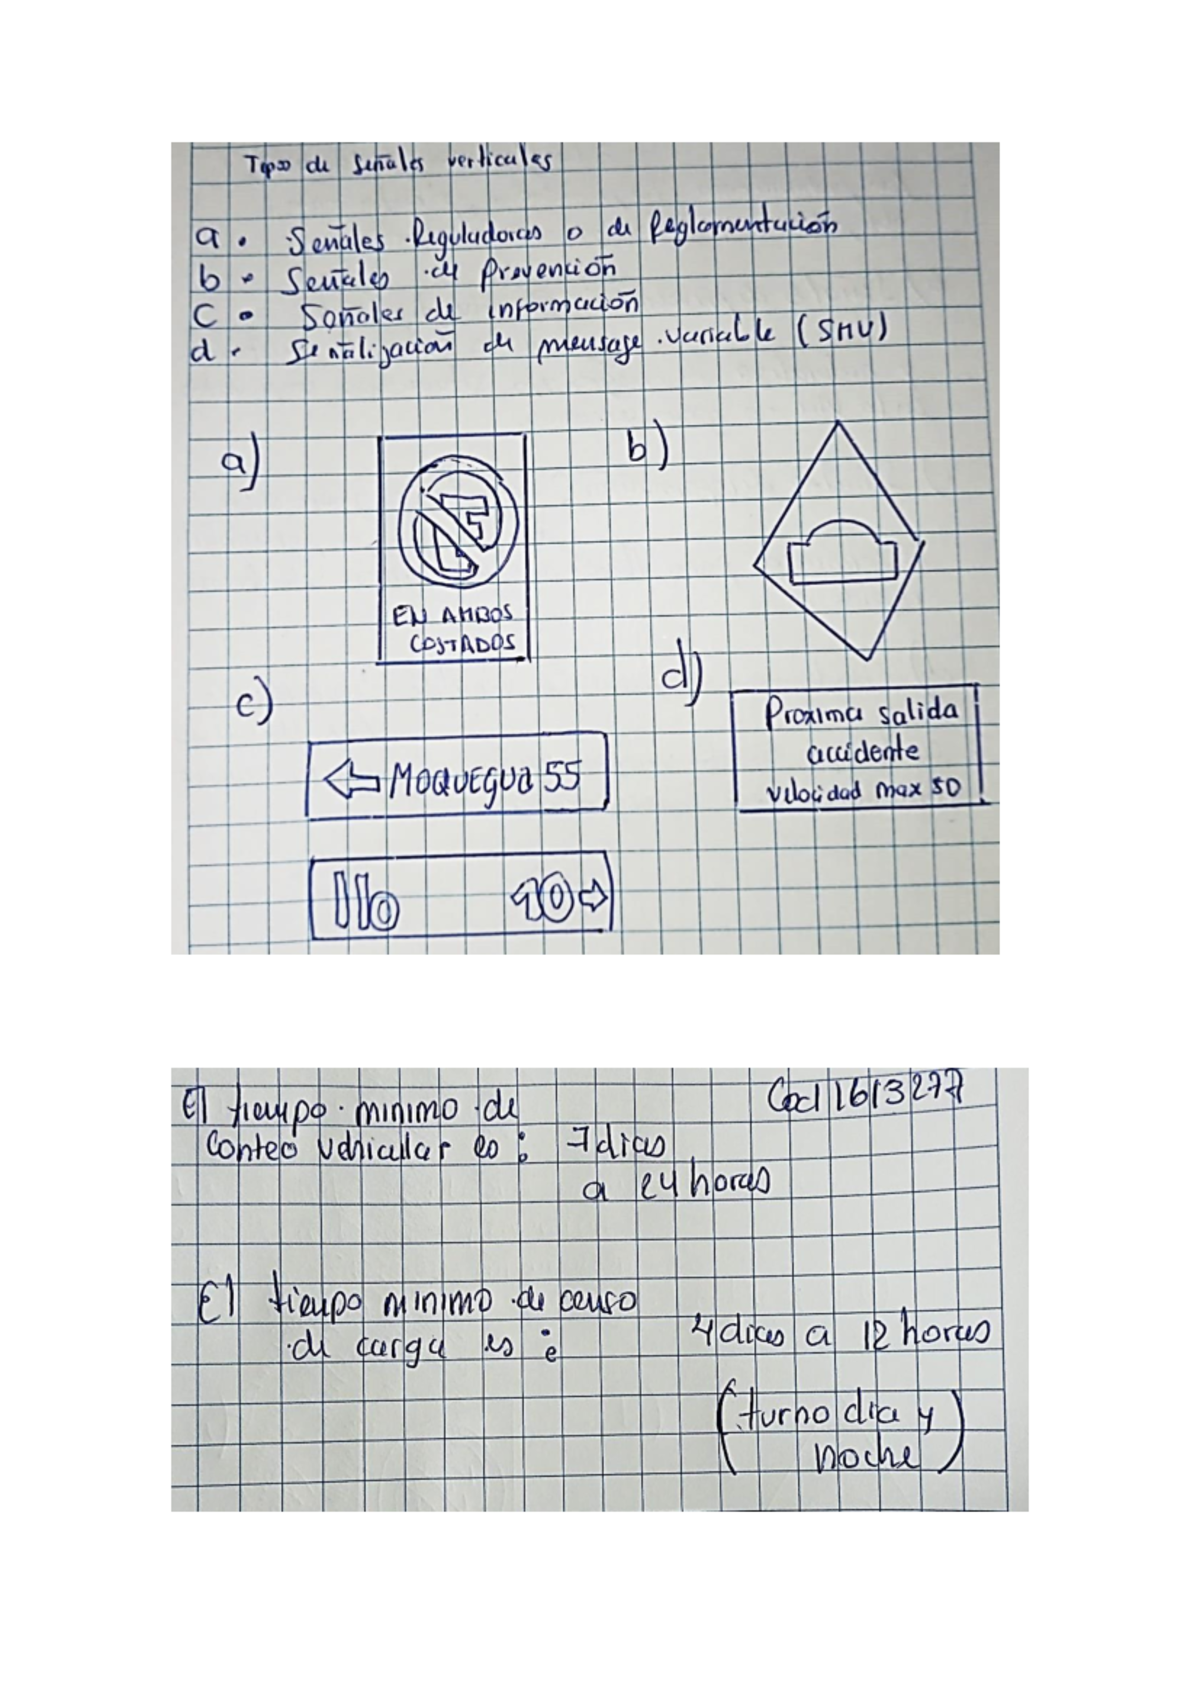 Tipos de Señales verticales
a. Señales Reguladoras o de Reglamentación
b. Señales de Prevención
c. Señales de información
d. Señalización de mensage variable (SMV)
a)
E
EN AMBOS
COSTADOS
b)
c)
← MOQUEGUA 55
Ilo 40 →
d)
Proxima salida
accidente
velocidad max 50
El tiempo minimo de
Conteo vehicular es: 7 dias
a 24 horas
Cod 1613277
El tiempo minimo de censo
de carga es: 4 dias a 12 horas
(turno dia y
noche)